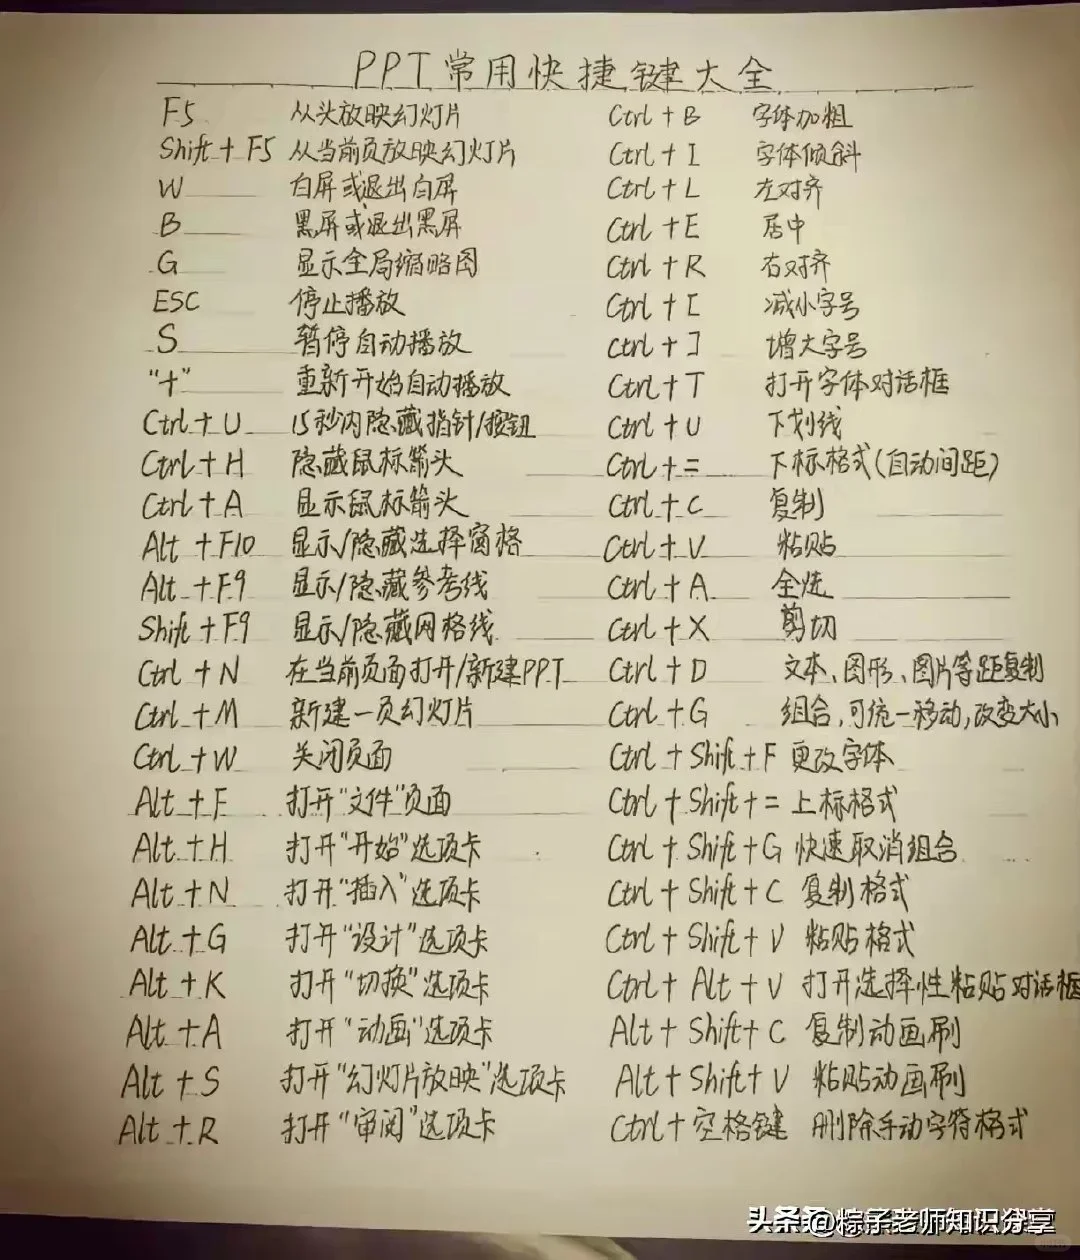 PPT常用快捷键大全
F5 从头放映幻灯片
Shift+F5 从当前页放映幻灯片
W 白屏或退出白屏
B 黑屏或退出黑屏
G 显示全局缩略图
ESC 停止播放
S 暂停自动播放
"+" 重新开始自动播放
Ctrl+U 15秒内隐藏指针/按钮
Ctrl+H 隐藏鼠标箭头
Ctrl+A 显示鼠标箭头
Alt+F10 显示/隐藏选择窗格
Alt+F9 显示/隐藏参考线
Shift+F9 显示/隐藏网格线
Ctrl+N 在当前页面打开/新建PPT
Ctrl+M 新建一页幻灯片
Ctrl+W 关闭页面
Alt+F 打开"文件"页面
Alt+H 打开"开始"选项卡
Alt+N 打开"插入"选项卡
Alt+G 打开"设计"选项卡
Alt+K 打开"切换"选项卡
Alt+A 打开"动画"选项卡
Alt+S 打开"幻灯片放映"选项卡
Alt+R 打开"审阅"选项卡
Ctrl+B 字体加粗
Ctrl+I 字体倾斜
Ctrl+L 左对齐
Ctrl+E 居中
Ctrl+R 右对齐
Ctrl+[ 减小字号
Ctrl+] 增大字号
Ctrl+T 打开字体对话框
Ctrl+U 下划线
Ctrl+= 下标格式(自动间距)
Ctrl+C 复制
Ctrl+V 粘贴
Ctrl+A 全选
Ctrl+X 剪切
Ctrl+D 文本、图形、图片等距复制
Ctrl+G 组合,可统一移动,改变大小
Ctrl+Shift+F 更改字体
Ctrl+Shift+= 上标格式
Ctrl+Shift+G 快速取消组合
Ctrl+Shift+C 复制格式
Ctrl+Shift+V 粘贴格式
Ctrl+Alt+V 打开选择性粘贴对话框
Alt+Shift+C 复制动画刷
Alt+Shift+V 粘贴动画刷
Ctrl+空格键 删除手动字符格式
头条@粽子老师知识分享